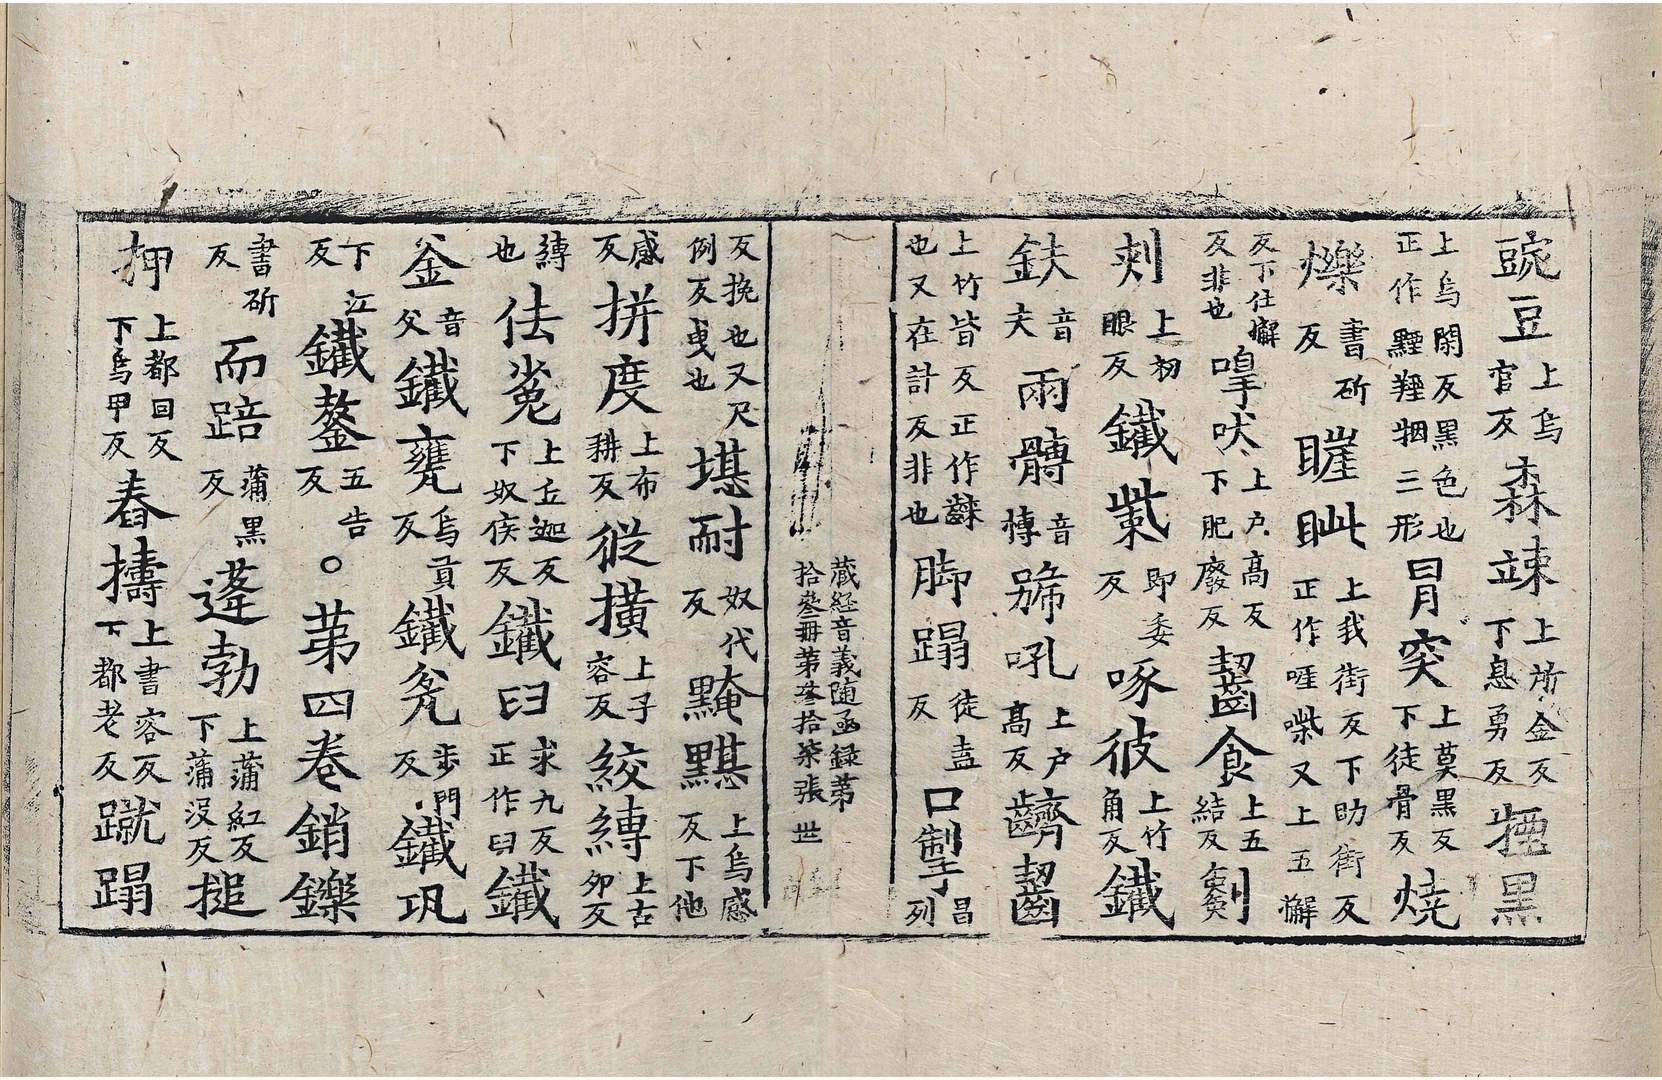 豌豆上烏官反森竦上所金反下息勇反𤯝黒
上烏閑反黒色也正作黫羥㹂三形冐突上莫黒反下徒骨反燒
爍書斫反𥈐眦上我街反下助街反正作啀喍又上五懈
反下仕懈反非也嘷吠上户高反下肥廢反齧食上五結反剜
刾上初眼反鐵觜即委反啄彼上竹角反鐵
鈇音夫兩髆音博號吼上户高反齌齧
上竹皆反正作齼也又在計反非也脚蹋徒盍反口掣昌列
藏経音義随函録第拾叁冊第叁拾柒張 世
反挽也又尺例反曵也堪耐奴代反黤黮上烏感反下他
感反拼度上布耕反從橫上子容反絞縛上古卯反
縛也佉㝹上丘迦反下奴侯反鐵臼求九反正作臼鐵
釜音父鐵甕烏貢反鐵瓫步門反鐵㼦
下江反鐵鏊五告反○第四卷銷鑠
書斫反而踣蒲黒反蓬勃上蒲紅反下蒲没反搥
押上都回反下烏甲反舂擣上書容反下都老反蹴蹋